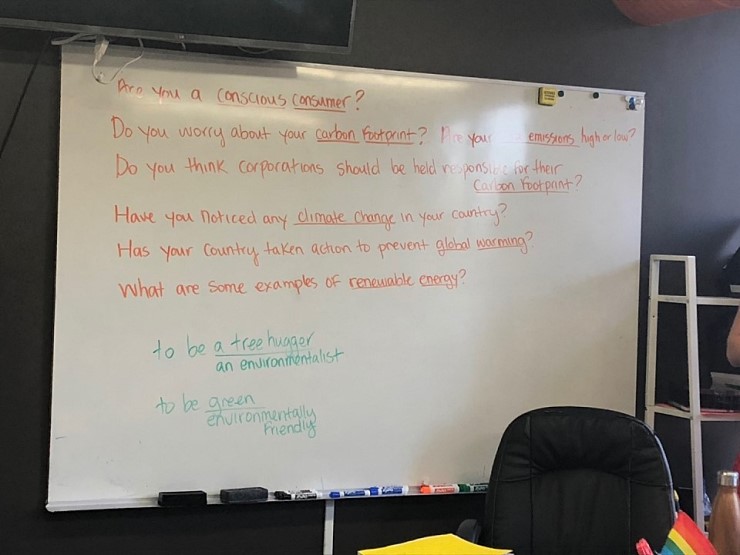 Are you a conscious consumer?
Do you worry about your carbon footprint? Are your emissions high or low?
Do you think corporations should be held responsible for their
carbon footprint?
Have you noticed any climate change in your country?
Has your country taken action to prevent global warming?
What are some examples of renewable energy?
to be a tree hugger
an environmentalist
to be green
environmentally
friendly